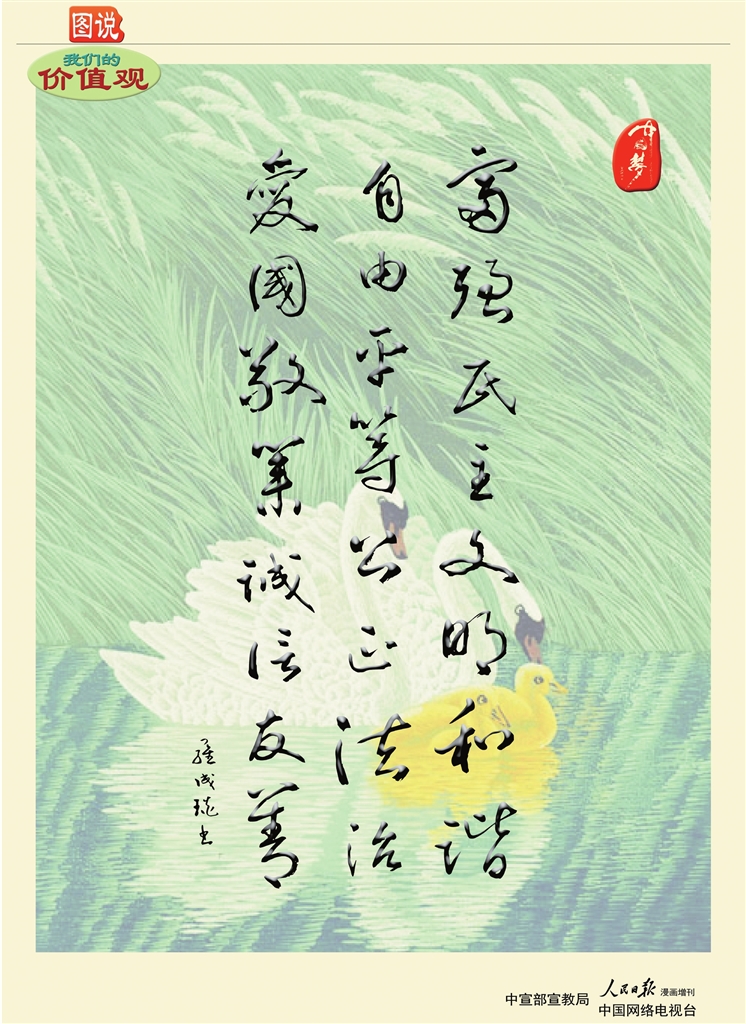 图说
我们的
价值观
中国梦
富强民主文明和谐
自由平等公正法治
愛國敬業誠信友善
中宣部宣教局
人民日报 漫画增刊
中国网络电视台